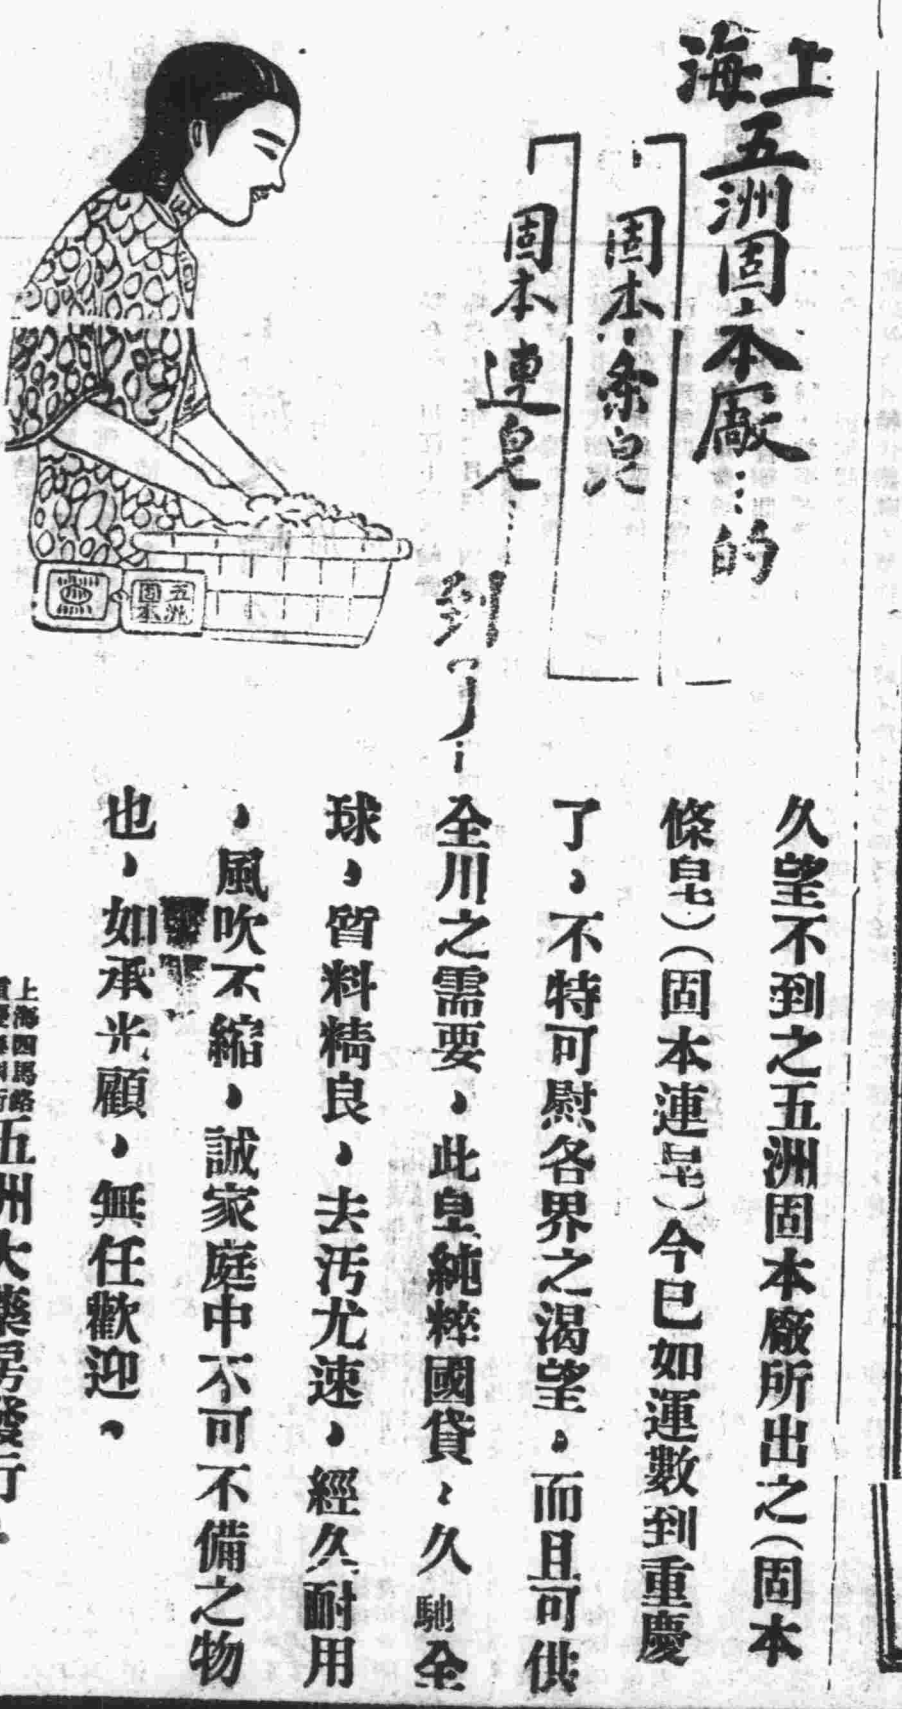 上海五洲固本廠……的
「固本条皂
「固本連皂……
到了…
久望不到之五洲固本廠所出之（固本
條皂）（固本連皂）今已如運數到重慶
了，不特可慰各界之渴望，而且可供
全川之需要，此皂純粹國貨、久馳全
球，質料精良，去汚尤速，經久耐用
，風吹不縮，誠家庭中不可不備之物
也，如承光顧，無任歡迎。
上海四馬路
五洲大藥房發行
五洲
固本